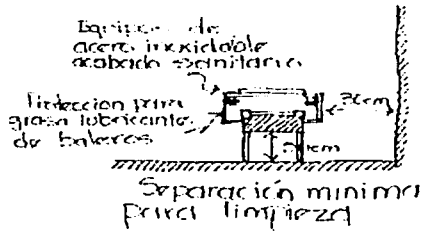 Equipos de
acero inoxidable
acabado sanitario
Protección para
grasa lubricante
de baleros
30cm
cm
Separación mínima
para limpieza